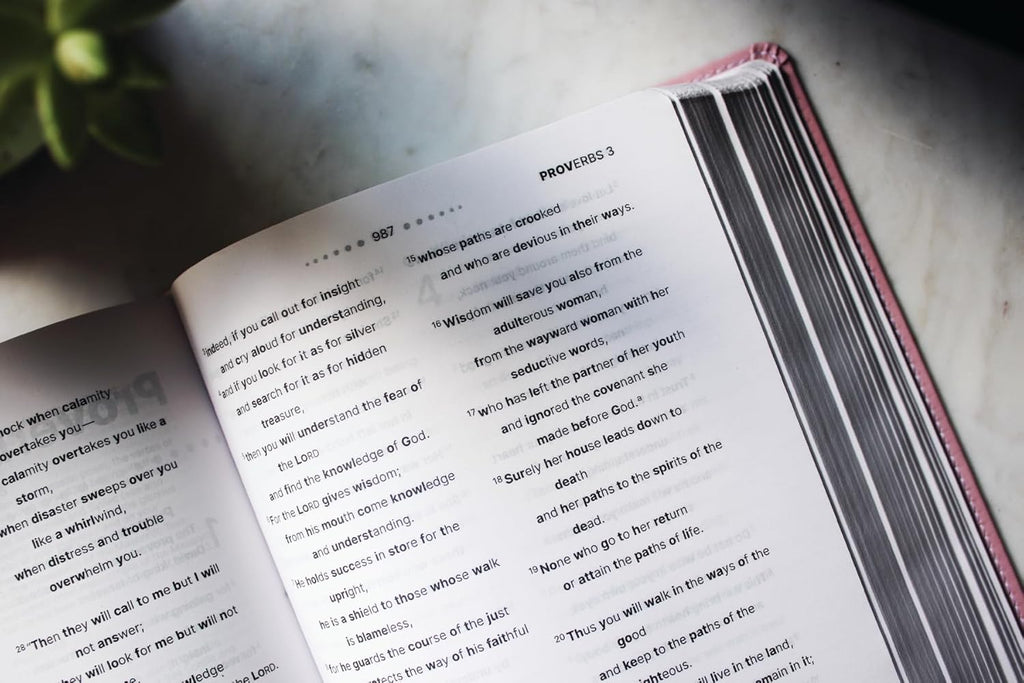 PROVERBS 3
987
mock when calamity
overtakes you—
calamity overtakes you like a
storm,
when disaster sweeps over you
like a whirlwind,
when distress and trouble
overwhelm you.
28 "Then they will call to me but I will
not answer;
they will look for me but will not
the LORD.
3 indeed, if you call out for insight
and cry aloud for understanding,
4 and if you look for it as for silver
and search for it as for hidden
treasure,
then you will understand the fear of
the LORD
and find the knowledge of God.
For the LORD gives wisdom;
from his mouth come knowledge
and understanding.
He holds success in store for the
upright,
he is a shield to those whose walk
is blameless,
for he guards the course of the just
the way of his faithful
15 whose paths are crooked
and who are devious in their ways.
16 Wisdom will save you also from the
adulterous woman,
from the wayward woman with her
seductive words,
17 who has left the partner of her youth
and ignored the covenant she
made before God.a
18 Surely her house leads down to
death
and her paths to the spirits of the
dead.
19 None who go to her return
or attain the paths of life.
20 Thus you will walk in the ways of the
good
and keep to the paths of the
will live in the land,
in it;